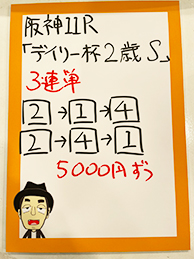 阪神11R
「デイリー杯2歳S」
3連単
2→1→4
2→4→1
5000円ずつ